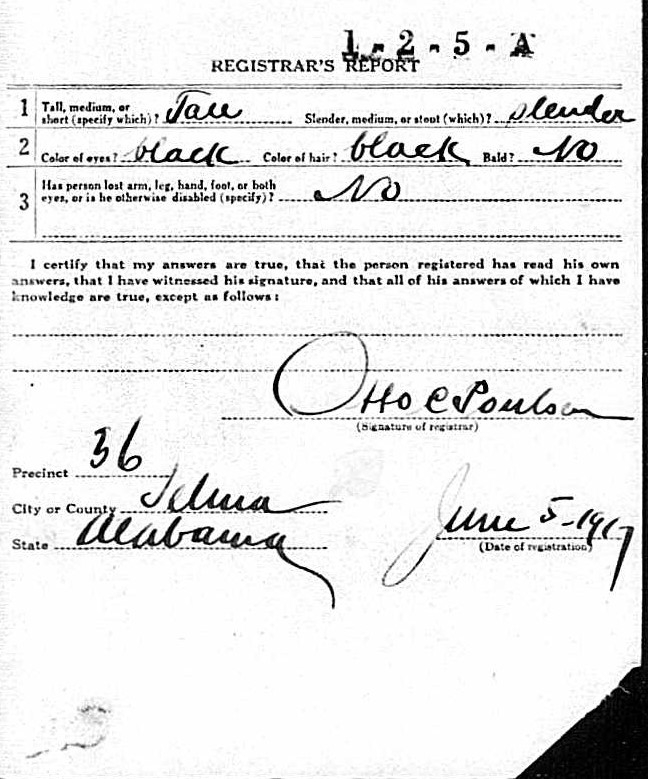 1 - 2 - 5 - A
REGISTRAR'S REPORT
1 Tall, medium, or short (specify which)? Tall Slender, medium, or stout (which)? slender
2 Color of eyes? black Color of hair? black Bald? No
3 Has person lost arm, leg, hand, foot, or both eyes, or is he otherwise disabled (specify)? No
I certify that my answers are true, that the person registered has read his own
answers, that I have witnessed his signature, and that all of his answers of which I have
knowledge are true, except as follows:
Otto C Poulsen
(Signature of registrar)
Precinct 36
City or County Selma
State Alabama
June 5-1917
(Date of registration)